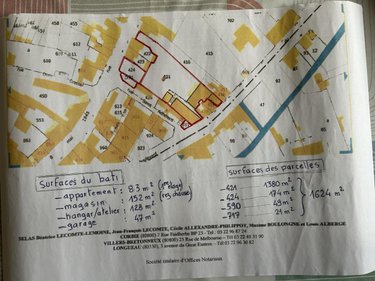 702
610
459
611
8
416
422
423
415
424
421
661
663
912
992
613
618
673
93
12
92
47
Surfaces du bati
- appartement : 83 m² (1er étage)
- magasin : 152 m² (rez chaussée)
- hangar/atelier : 128 m²
- garage : 47 m²
surfaces des parcelles
- 421 1380 m²
- 424 174 m²
- 590 49 m²
- 717 21 m²
1624 m²
SELAS Béatrice LECOMTE-LEMOINE, Jean-François LECOMTE, Cécile ALLEXANDRE-PHILIPPOT, Maxime BOULONGNE et Louis ALBERGE
CORBIE (80800) 7 Rue Faidherbe BP 25 - Tél : 03 22 96 87 24
VILLERS-BRETONNEUX (80800) 25 Rue de Melbourne - Tél 03 22 48 31 90
LONGUEAU (80330), 3 avenue du Gnral Estaing - Tél : 03 22 96 30 62
Société titulaire d'Offices Notariaux